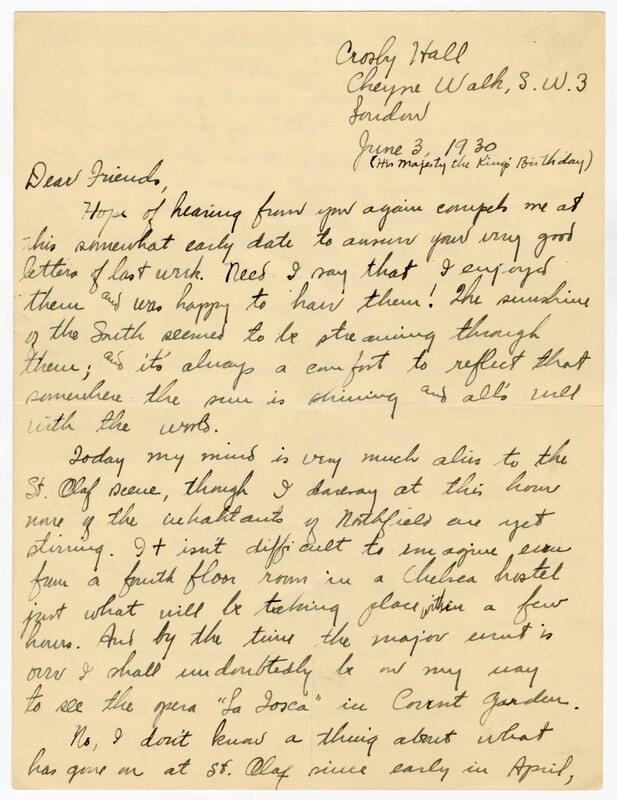 Crosby Hall
Cheyne Walk, S.W.3
London
June 3, 1930
(His Majesty the King's Birthday)
Dear Friends,
Hope of hearing from you again compels me at
this somewhat early date to answer your very good
letters of last week. Need I say that I enjoyed
them and was happy to have them! The sunshine
of the South seemed to be streaming through
them; and it's always a comfort to reflect that
somewhere the sun is shining and all's well
with the world.
Today my mind is very much alive to the
St. Olaf scene, though I daresay at this hour
none of the inhabitants of Northfield are yet
stirring. It isn't difficult to imagine even
from a fourth floor room in a Chelsea hostel
just what will be taking place within a few
hours. And by the time the major event is
over I shall undoubtedly be on my way
to see the opera "La Tosca" in Covent Garden.
No, I don't know a thing about what
has gone on at St. Olaf since early in April,